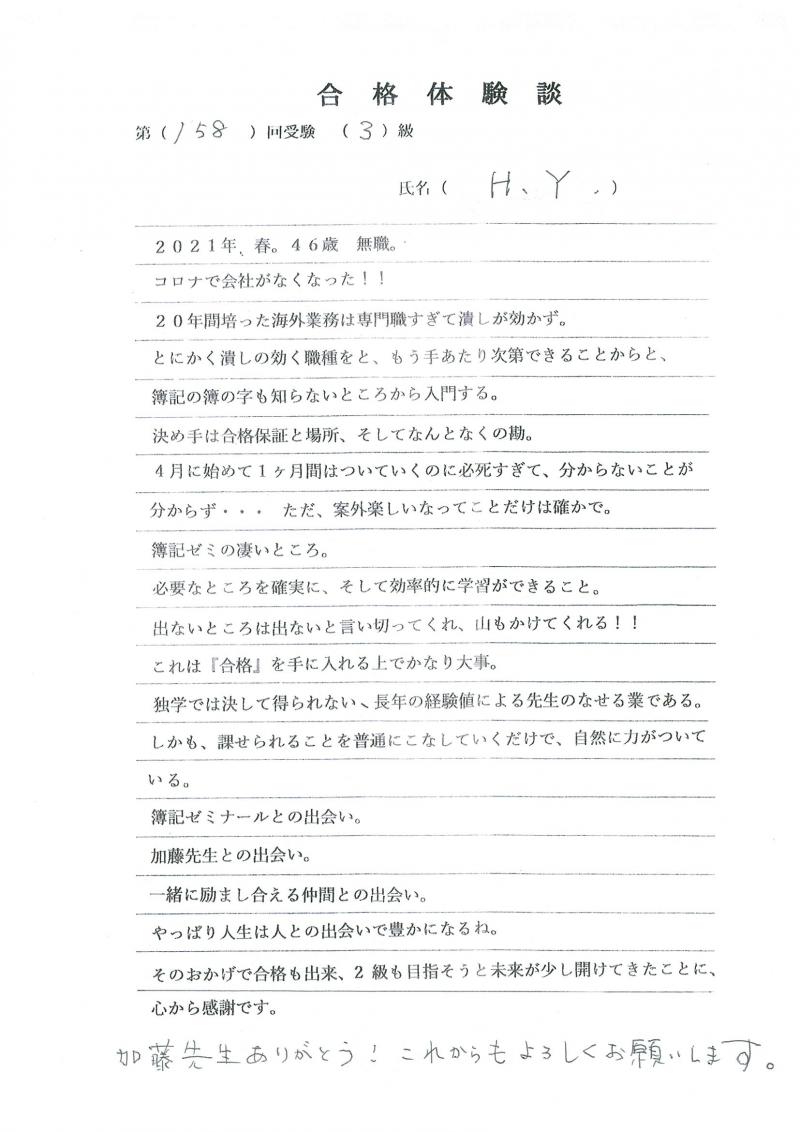 合格体験談
第（158）回受験　（3）級
氏名（　H、Y．）
２０２１年、春。４６歳　無職。
コロナで会社がなくなった！！
２０年間培った海外業務は専門職すぎて潰しが効かず。
とにかく潰しの効く職種をと、もう手あたり次第できることからと、
簿記の簿の字も知らないところから入門する。
決め手は合格保証と場所、そしてなんとなくの勘。
４月に始めて１ヶ月間はついていくのに必死すぎて、分からないことが
分からず・・・　ただ、案外楽しいなってことだけは確かで。
簿記ゼミの凄いところ。
必要なところを確実に、そして効率的に学習ができること。
出ないところは出ないと言い切ってくれ、山もかけてくれる！！
これは『合格』を手に入れる上でかなり大事。
独学では決して得られない、長年の経験値による先生のなせる業である。
しかも、課せられることを普通にこなしていくだけで、自然に力がついて
いる。
簿記ゼミナールとの出会い。
加藤先生との出会い。
一緒に励まし合える仲間との出会い。
やっぱり人生は人との出会いで豊かになるね。
そのおかげで合格も出来、２級も目指そうと未来が少し開けてきたことに、
心から感謝です。
加藤先生ありがとう！これからもよろしくお願いします。